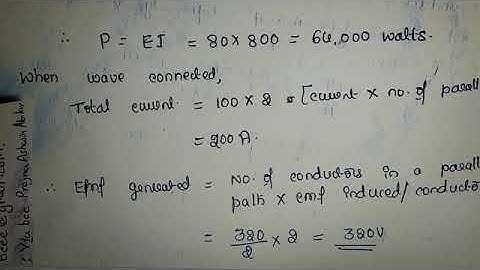 ∴ P = EI = 80 x 800 = 64,000 watts.
When wave connected,
Total current = 100 x 2 = [current x no. of parall
= 200 A.
∴ Emf generated = No. of conductors in a parall
path x emf induced/conducto
= 320/2 x 2 = 320V